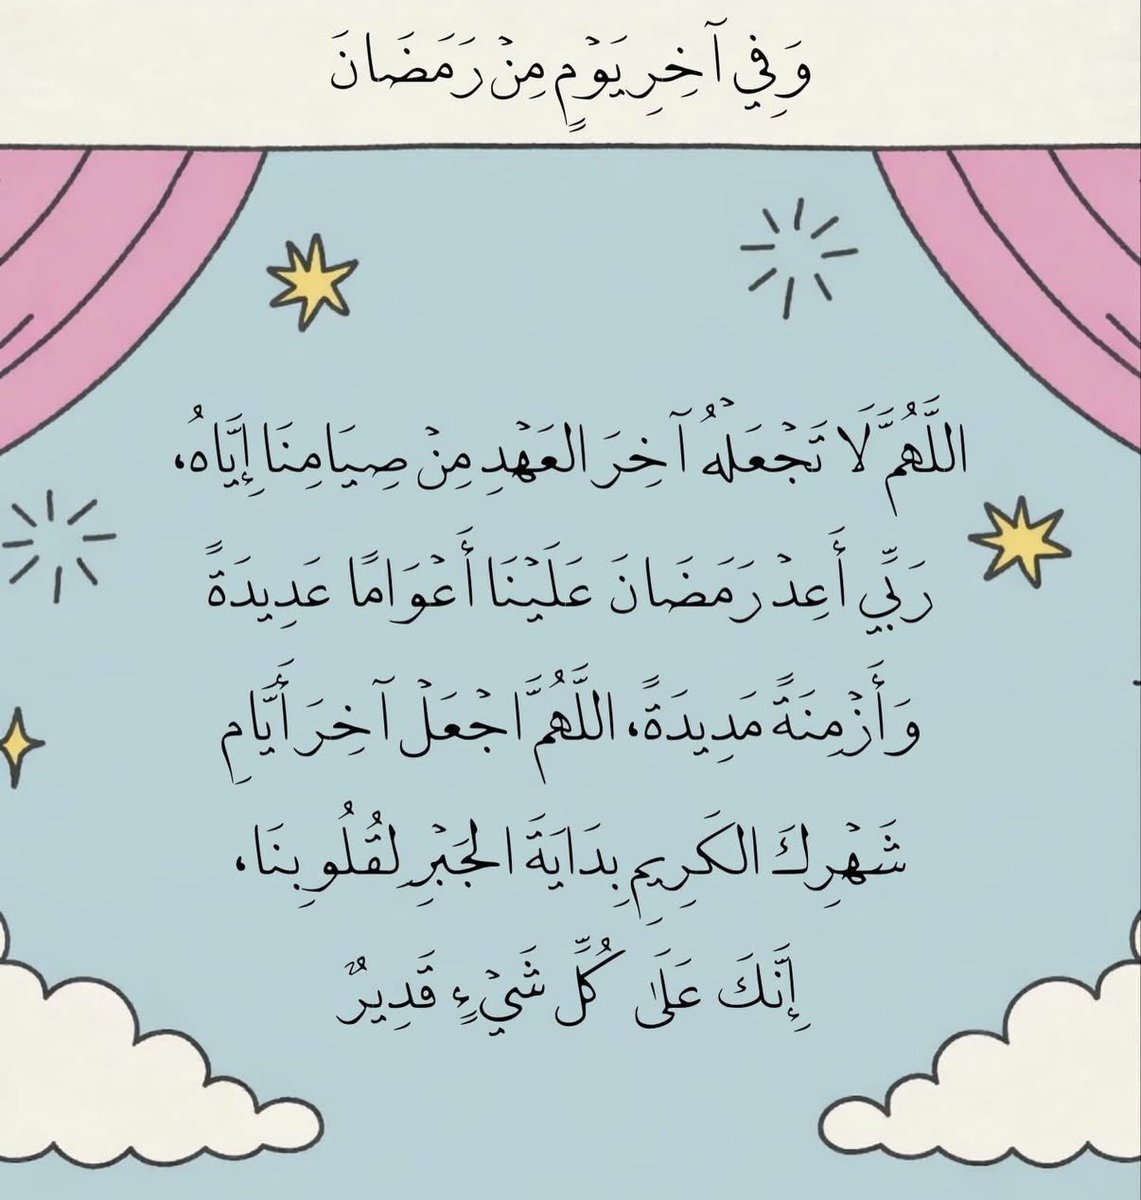 وَفِي آخِرِ يَوْمٍ مِنْ رَمَضَانَ
اللَّهُمَّ لَا تَجْعَلْهُ آخِرَ العَهْدِ مِنْ صِيَامِنَا إِيَّاهُ،
رَبِّي أَعِدْ رَمَضَانَ عَلَيْنَا أَعْوَامًا عَدِيدَةً
وَأَزْمِنَةً مَدِيدَةً، اللَّهُمَّ اجْعَلْ آخِرَ أَيَّامِ
شَهْرِكَ الكَرِيمِ بِدَايَةَ الجَبْرِ لِقُلُوبِنَا،
إِنَّكَ عَلَىٰ كُلِّ شَيْءٍ قَدِيرٌ